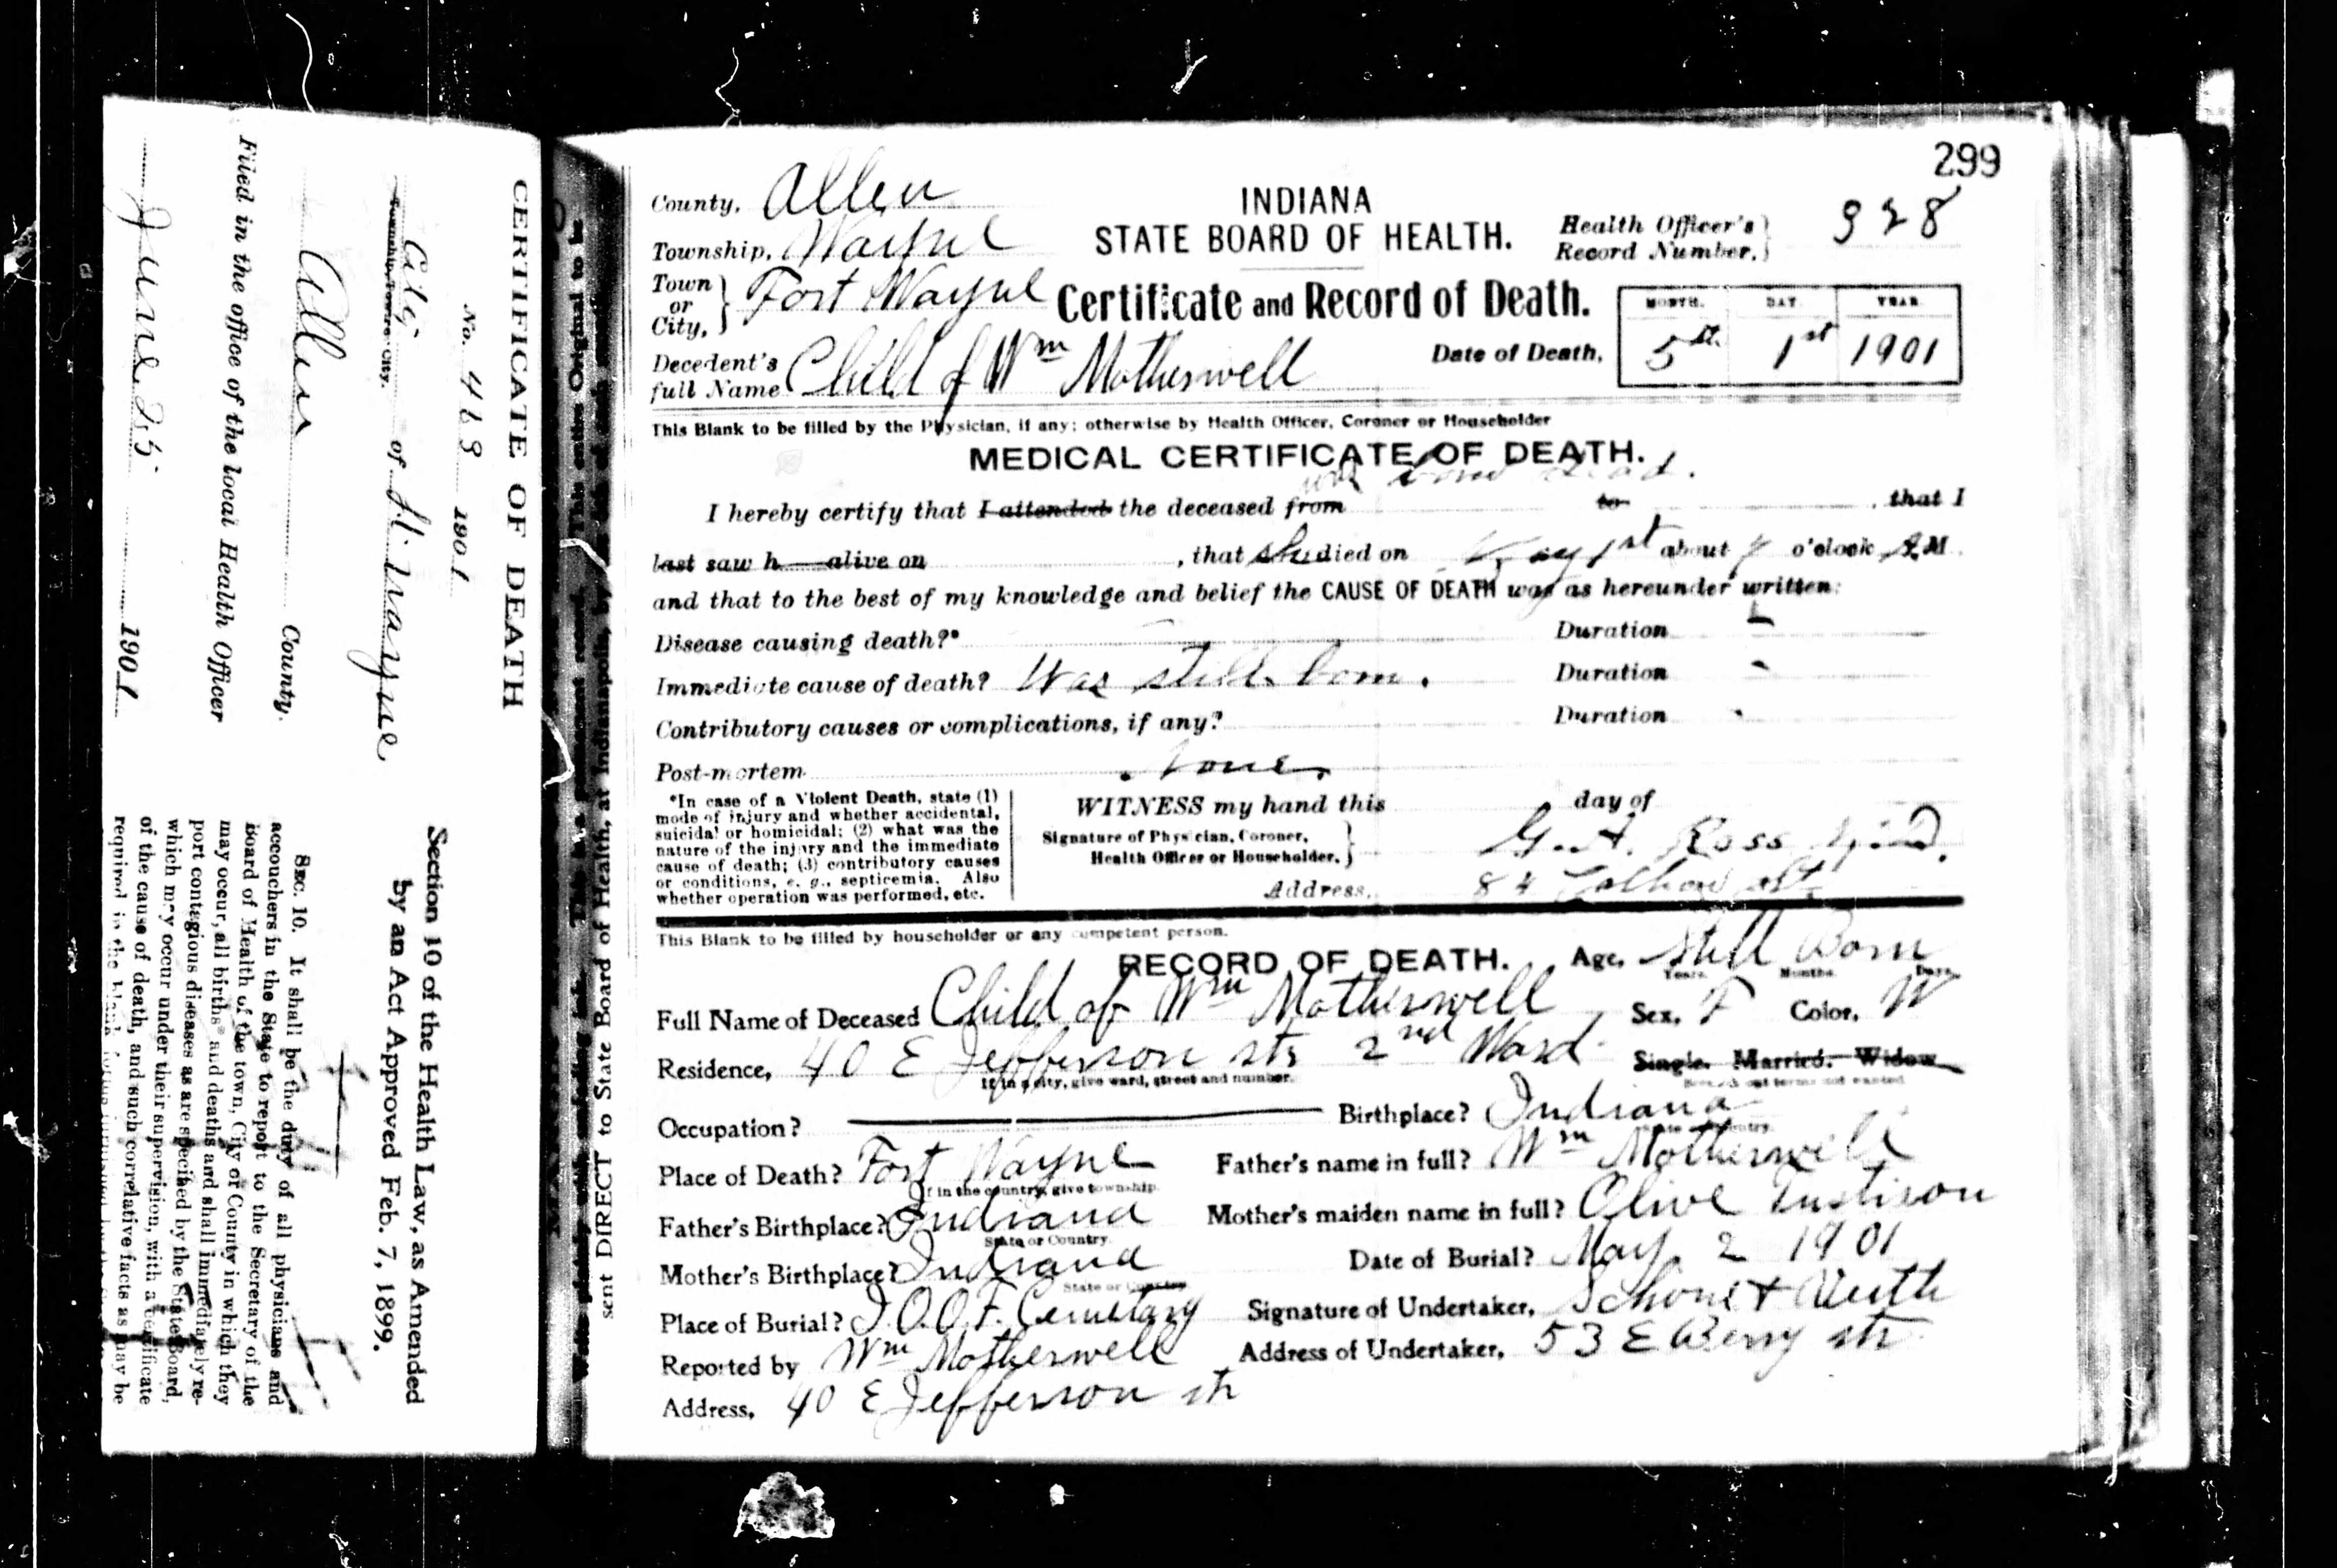 CERTIFICATE OF DEATH
No. 469 1901
City of Ft. Wayne,
Township, Town or City.
Allen County.
Filed in the office of the local Health Officer
June 25 1901
Section 10 of the Health Law, as Amended
by an Act Approved Feb. 7, 1899.
SEC. 10. It shall be the duty of all physicians and
accouchers in the State to report to the Secretary of the
Board of Health of the town, City or County in which they
may occur, all births and deaths and shall immediately re-
port contagious diseases as are specified by the State Board,
which may occur under their supervision, with a certificate
of the cause of death, and such correlative facts as may be
required in the blank forms furnished
sent DIRECT to State Board of Health, at Indianapolis,
299
County, Allen
INDIANA
STATE BOARD OF HEALTH.
Health Officer's
Record Number. 928
Township, Wayne
Town or City, Fort Wayne
Certificate and Record of Death.
MONTH. DAY. YEAR
Decedent's full Name Child of Wm Motherwell
Date of Death, 5th 1st 1901
This Blank to be filled by the Physician, if any; otherwise by Health Officer, Coroner or Householder
MEDICAL CERTIFICATE OF DEATH.
was born dead.
I hereby certify that I attended the deceased from to , that I
last saw h alive on , that she died on May 1st about 7 o'clock A.M.
and that to the best of my knowledge and belief the CAUSE OF DEATH was as hereunder written:
Disease causing death?* Duration -
Immediate cause of death? Was still born. Duration -
Contributory causes or complications, if any? Duration -
Post-mortem None.
*In case of a Violent Death, state (1)
mode of injury and whether accidental,
suicidal or homicidal; (2) what was the
nature of the injury and the immediate
cause of death; (3) contributory causes
or conditions, e. g., septicemia. Also
whether operation was performed, etc.
WITNESS my hand this day of
Signature of Physician, Coroner,
Health Officer or Householder, G. A. Ross M.D.
Address, 84 Calhoun St
This Blank to be filled by householder or any competent person.
RECORD OF DEATH. Age, Still Born
Years. Months. Days.
Full Name of Deceased Child of Wm Motherwell Sex, F Color, W
Residence, 40 E Jefferson str 2nd Ward Single. Married. Widow
If in a city, give ward, street and number. Strike out terms not wanted
Occupation? Birthplace? Indiana
State or Country.
Place of Death? Fort Wayne Father's name in full? Wm Motherwell
If in the country, give township.
Father's Birthplace? Indiana Mother's maiden name in full? Olive Eustison
State or Country.
Mother's Birthplace? Indiana Date of Burial? May 2 1901
State or Country
Place of Burial? I.O.O.F. Cemetary Signature of Undertaker, Schone &
Reported by Wm Motherwell Address of Undertaker, 53 E Berry str
Address, 40 E Jefferson str